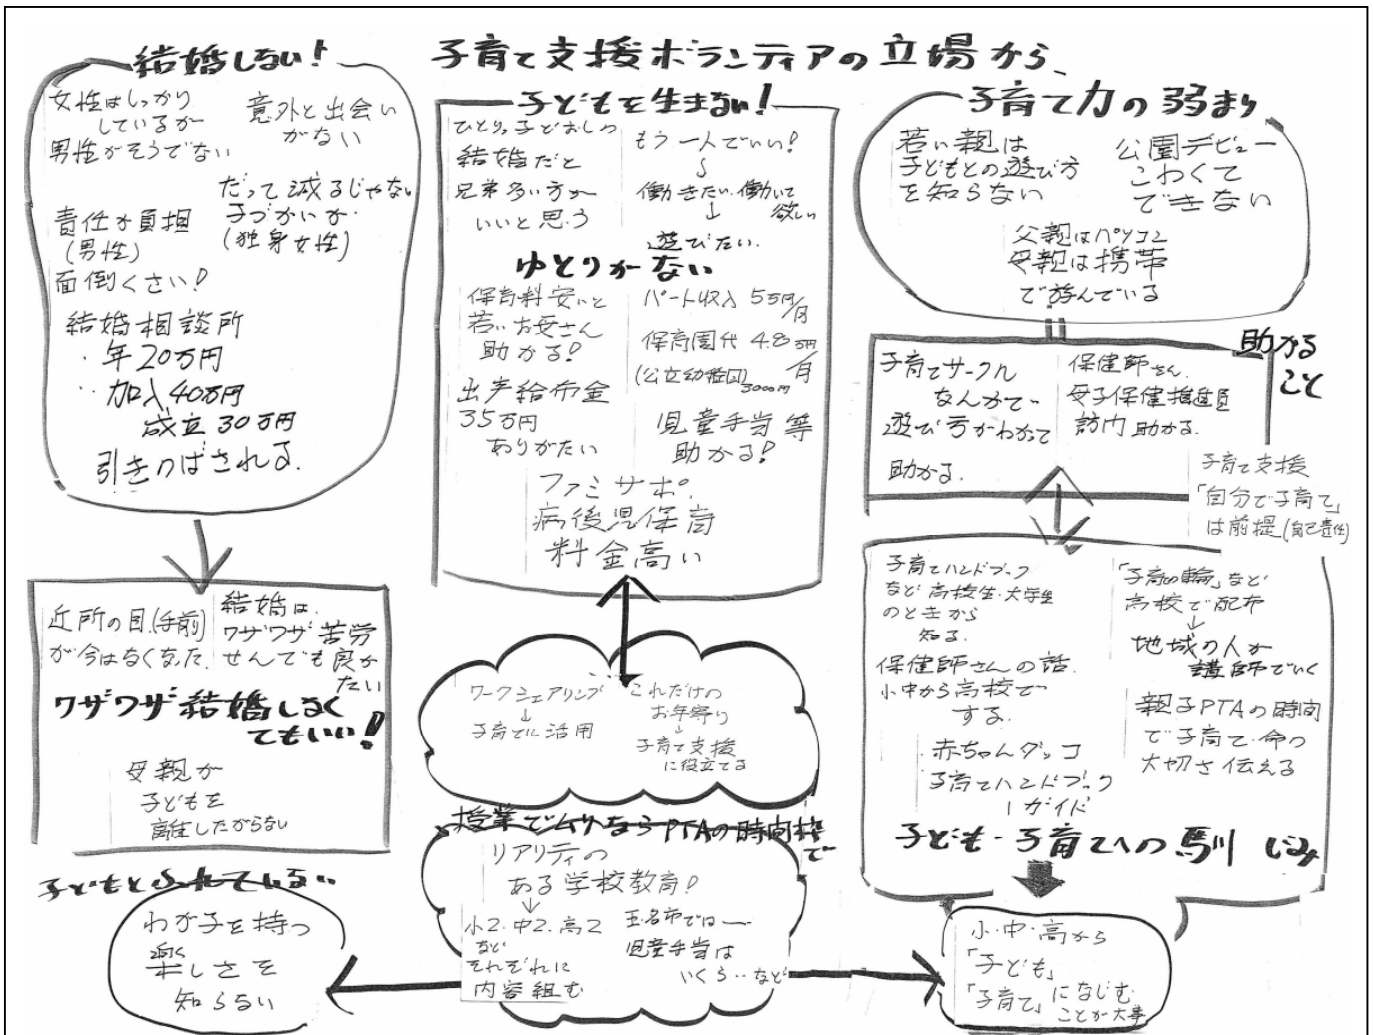 子育て支援ボランティアの立場から、
結婚しない!
女性はしっかり
しているが
男性がそうでない
意外と出会い
がない
だって減るじゃない
子づかいが
(独身女性)
責任が負担
(男性)
面倒くさい!
結婚相談所
・年20万円
・加入40万円
成立30万円
引きのばされる。
近所の目(手前)
が今はなくなった。
結婚は、
ワザワザ苦労
せんでも良か
たい
ワザワザ結婚しなく
てもいい!
母親が
子どもを
離したがらない
子どもとふれていない
わが子を持つ
楽しさを
知らない
子どもを生まない!
ひとりっ子どおしの
結婚だと
兄弟多い方が
いいと思う
もう一人でいい!
働きたい・働いて
欲しい
↓
遊びたい。
ゆとりがない
保育料安いと
若いお母さん
助かる!
出産給布金
35万円
ありがたい
パート収入 5万円/月
保育園代 4.8万円/月
(公立幼稚園)3000円
児童手当等
助かる!
ファミサポ。
病後児保育
料金高い
ワークシェアリング
↓
子育てに活用
これだけの
お年寄り
→
子育て支援
に役立てる
授業でムリならPTAの時間枠
で
リアリティの
ある学校教育!
↓
小2・中2・高2
など
それぞれに
内容組む
玉名市では―
児童手当は
いくら‥など
子育て力の弱まり
若い親は
子どもとの遊び方
を知らない
公園デビュー
こわくて
できない
父親はパソコン
母親は携帯
で遊んでいる
助かる
こと
子育てサークル
なんかで
遊び方がわかって
助かる。
保健師さん、
母子保健推進員
訪問 助かる。
子育て支援
「自分で子育て」
は前提(自己責任)
子育てハンドブック
など高校生・大学生
のときから
知る。
保健師さんの話。
小中から高校で
する。
赤ちゃんダッコ
子育てハンドブック
ガイド
「子育の輪」など
高校で配布
↓
地域の人が
講師でいく
親子PTAの時間
で子育て・命の
大切さ伝える
子ども・子育てへの馴じみ
小・中・高から
「子ども」
「子育て」になじむ
ことが大事